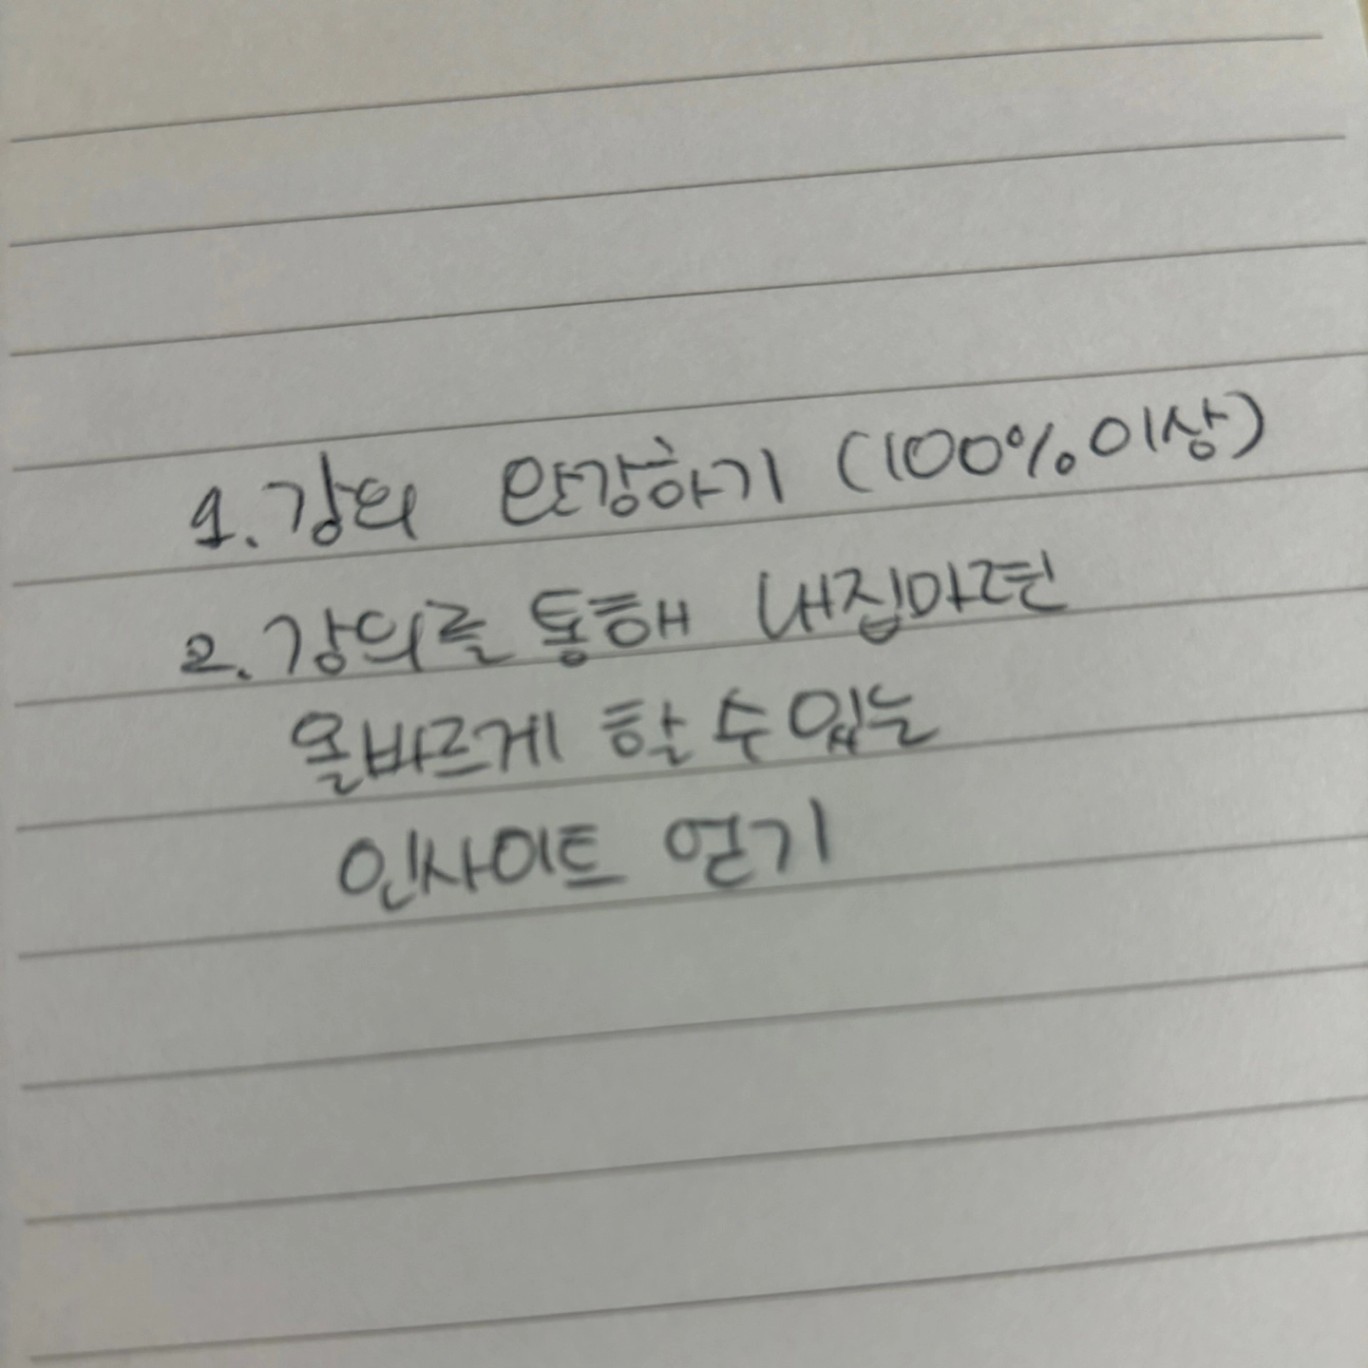 1. 강의 완강하기 (100% 이상)
2. 강의를 통해 내집마련
올바르게 할 수 있는
인사이트 얻기